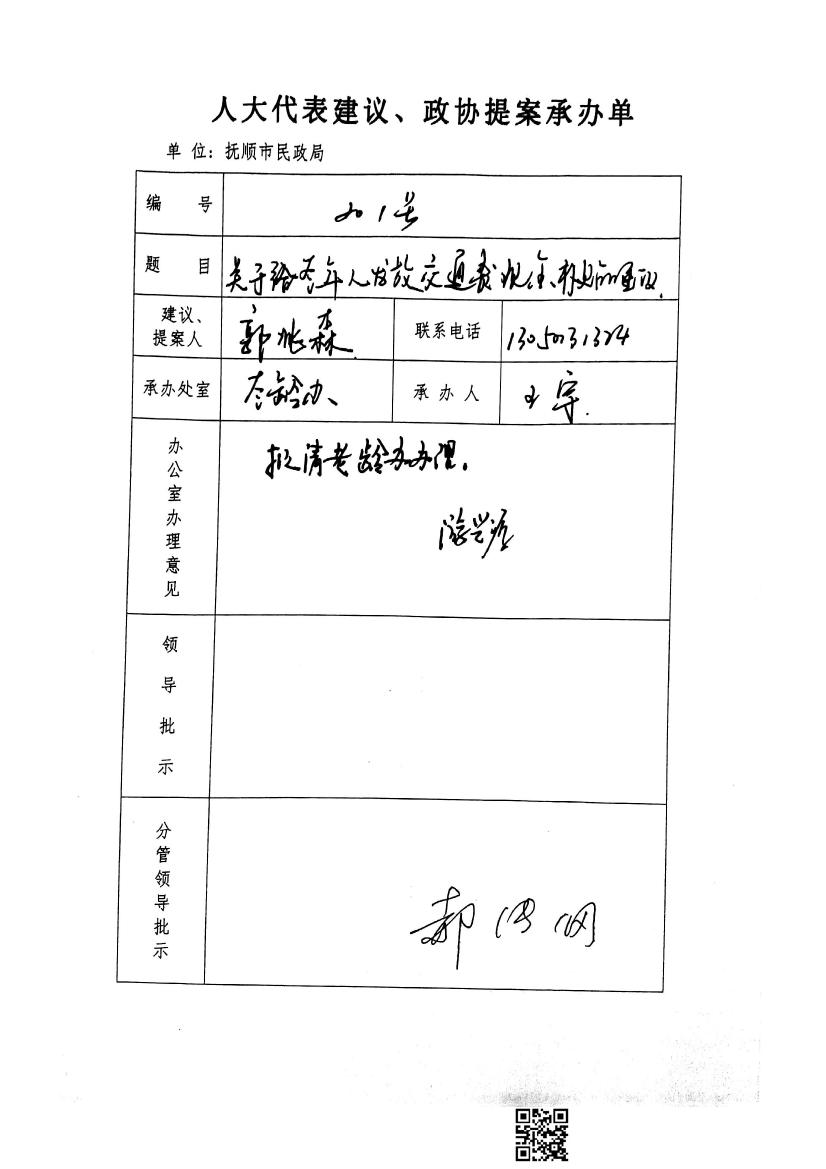 人大代表建议、政协提案承办单
单 位：抚顺市民政局
编 号
1号
题 目
关于给老年人发放交通费现金、补贴的建议
建议、提案人
郭 森
联系电话
承办处室
老龄办
承 办 人
王宇
办公室办理意见
拟请老龄办办理。
领导批示
分管领导批示
郝